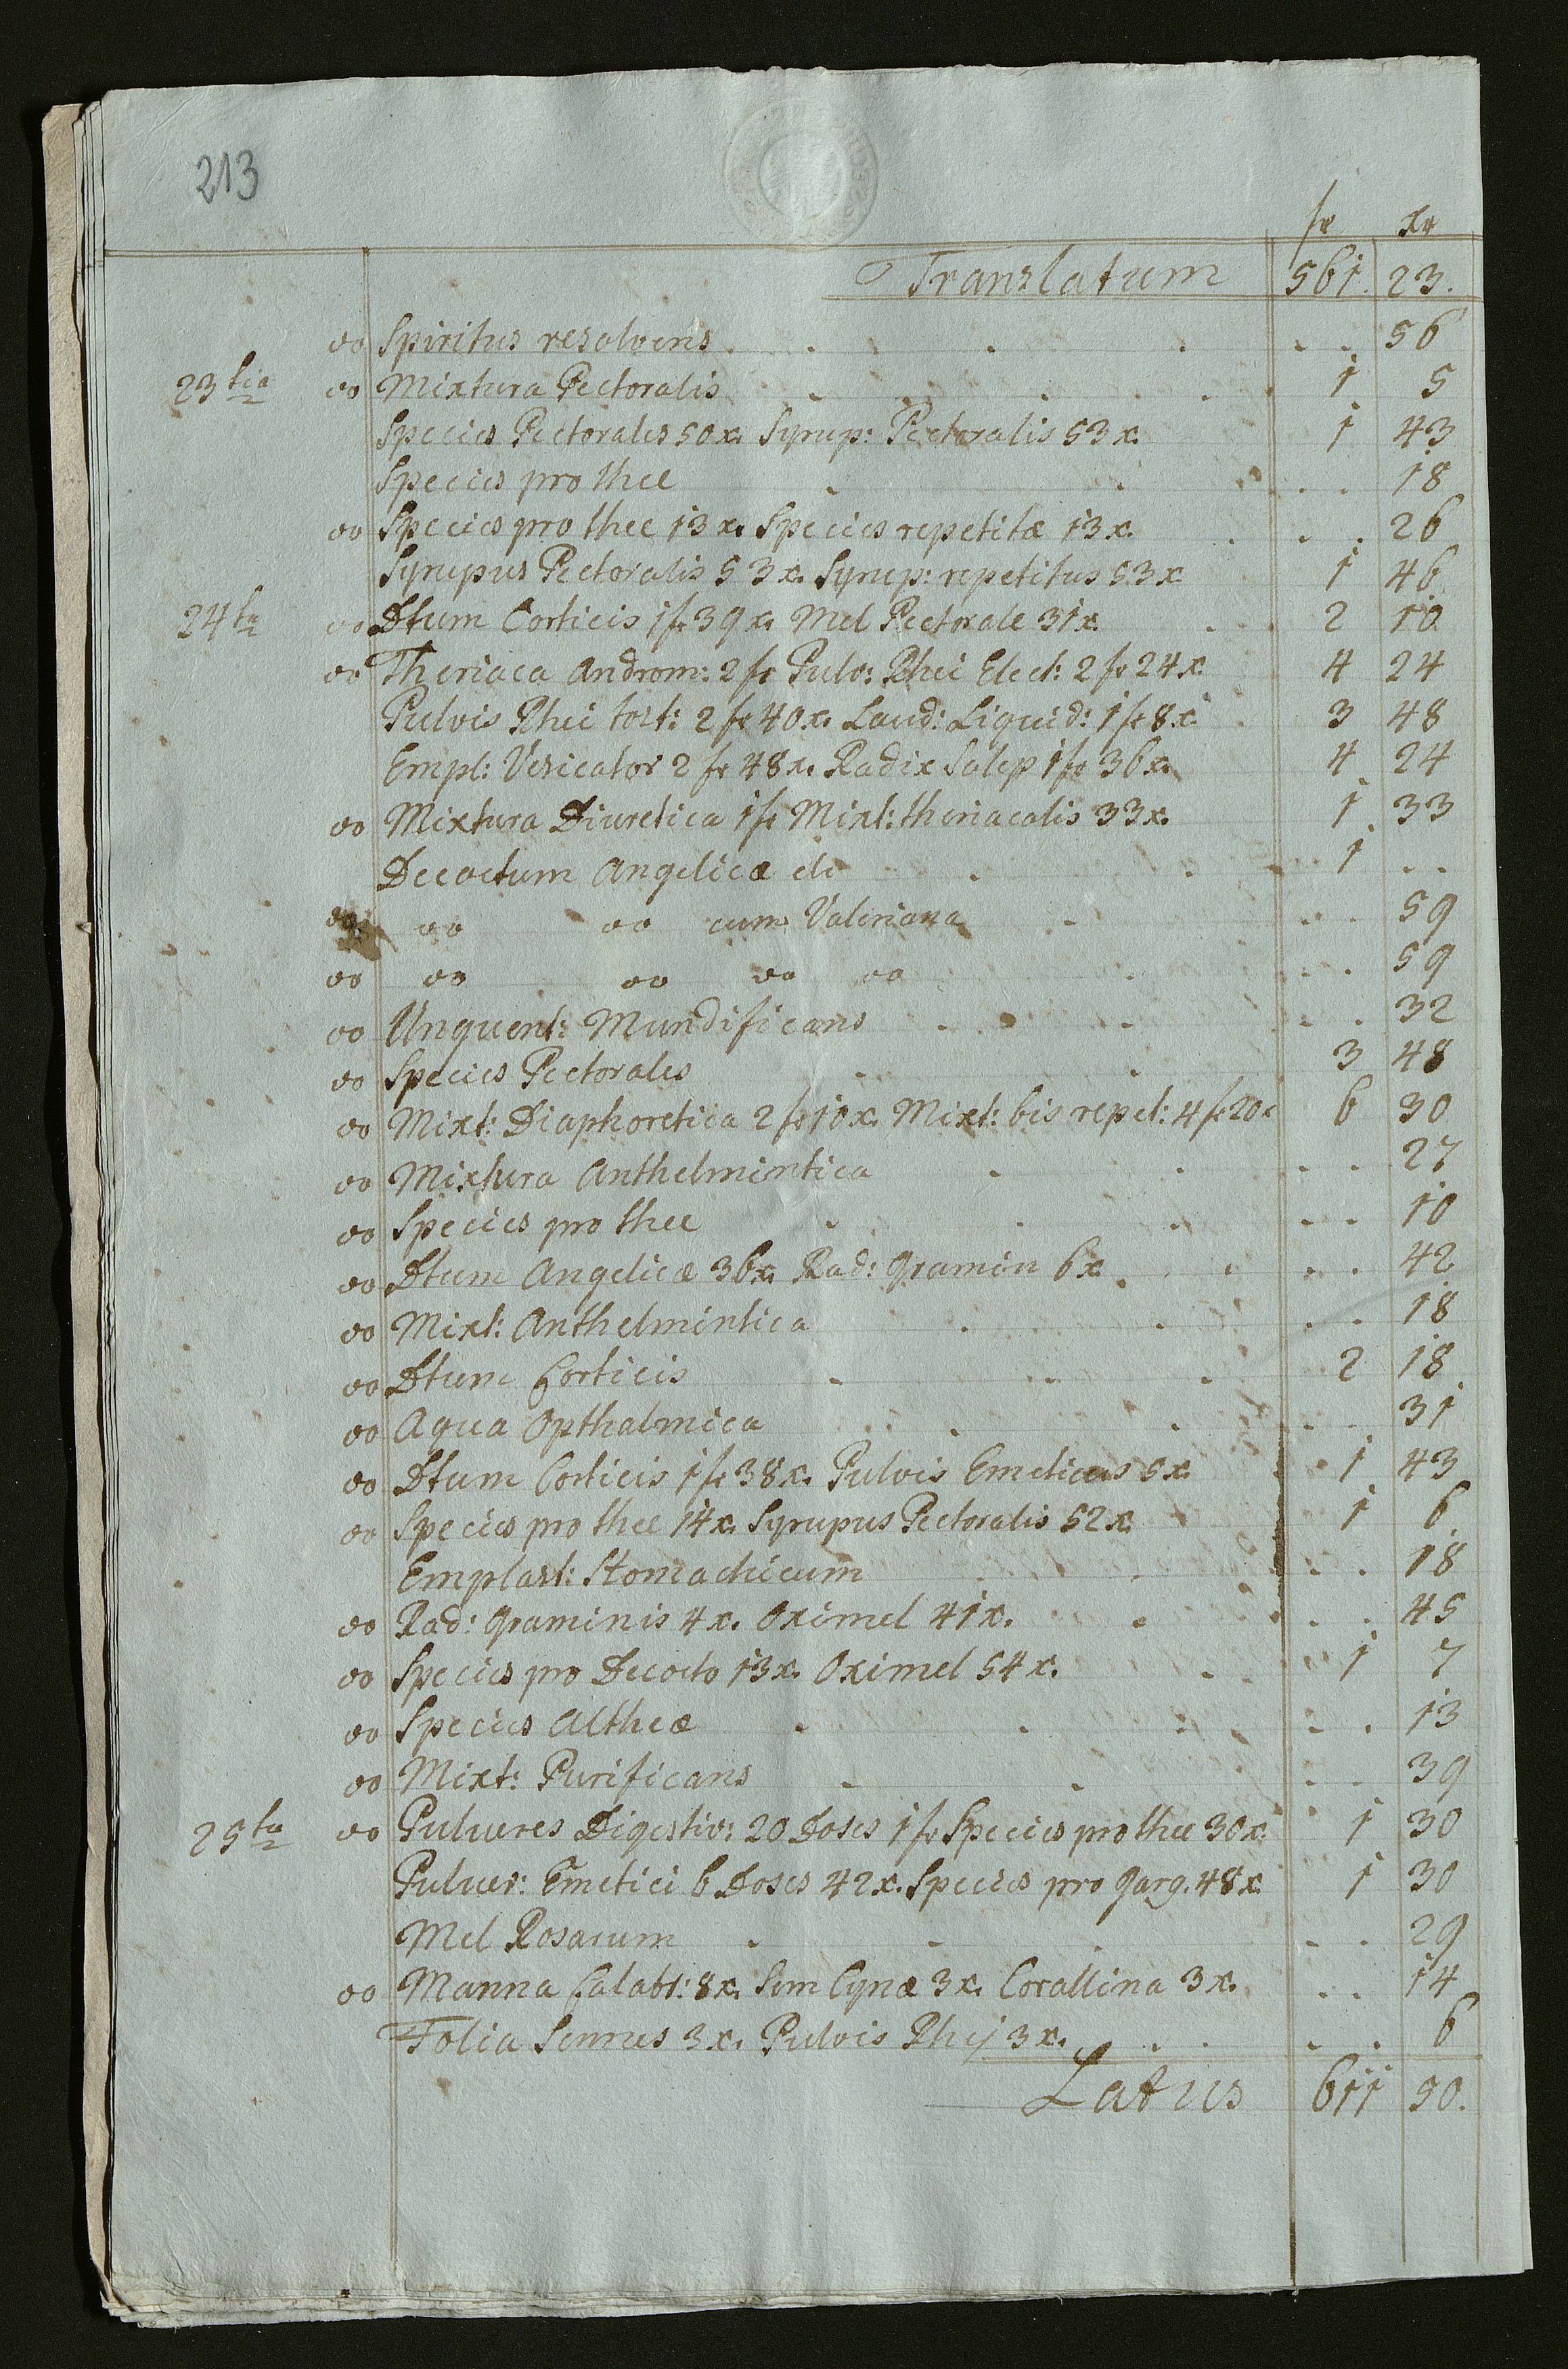 213
fr xr
Translatum 561. 23.
oo Spiritus resolvens . . . . . . 56
23tia oo Mixtura Pectoralis . . . . 1 5
Species Pectorales 50x. Syrup: Pectoralis 53x. 1 43
Species pro thee . . . . 18
oo Species pro thee 13x. Species repetitæ 13x. . . . 26
Syrupus Pectoralis 53x. Syrup: repetitus 53x 1 46
24ta oo Dtum Corticis 1fr 39x. Mel Pectorale 31x. . . 2 10
oo Theriaca Androm: 2fr Pulv: Rhei Elect: 2fr 24x. 4 24
Pulvis Rhei tost: 2fr 40x. Laud: Liquid: 1fr 8x. 3 48
Empl: Vesicator 2fr 48x. Radix Salep 1fr 36x. 4 24
oo Mixtura Diuretica 1fr Mixt: theriacalis 33x. 1 33
Decoctum Angelicæ etc . . . 1 . .
oo oo oo cum Valeriana . . . 59
oo oo oo oo oo . . . 59
oo Unguent: Mundificans . . . . 32
oo Species Pectorales . . 3 48
oo Mixt: Diaphoretica 2fr 10x. Mixt: bis repet: 4fr 20x 6 30
oo Mixtura Anthelmintica . . . . 27
oo Species pro thee . . . . . 10
oo Dtum Angelicæ 36x. Rad: Gramin 6x . . . . 42
oo Mixt: Anthelmintica . . . . 18
oo Dtum Corticis . . . 2 18
oo Aqua Opthalmica . . . . 31
oo Dtum Corticis 1fr 38x. Pulvis Emeticus 5x. 1 43
oo Species pro thee 14x. Syrupus Pectoralis 52x. 1 6
Emplast: Stomachicum . . . . 18
oo Rad: Graminis 4x. Oximel 41x. . . . 45
oo Species pro Decocto 13x. Oximel 54x. . 1 7
oo Species Altheæ . . . . . 13
oo Mixt: Purificans . . . . 39
25ta oo Pulveres Digestiv: 20 Doses 1fr Species pro thee 30x. 1 30
Pulver: Emetici 6 Doses 42x. Species pro garg. 48x. 1 30
Mel Rosarum . . . . . 29
oo Manna Calabr: 8x. Sem Cynæ 3x. Corallina 3x. . . 14
Folia Sennes 3x. Pulvis Rhej 3x. . . . . 6
Latus 611 50.